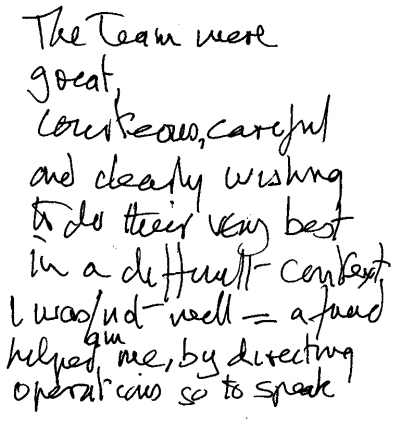 The Team were
great,
courteous, careful
and clearly wishing
to do their very best
in a difficult context,
I was/am not well = a friend
helped me, by directing
operations so to speak